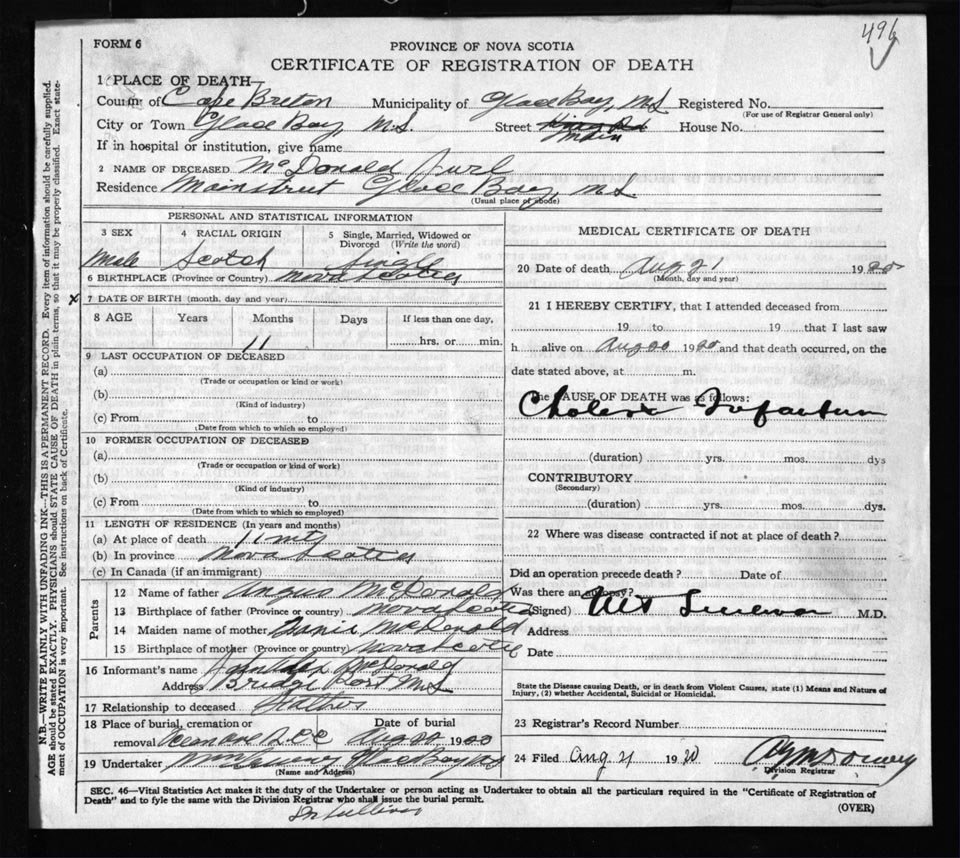 496
FORM 6
PROVINCE OF NOVA SCOTIA
CERTIFICATE OF REGISTRATION OF DEATH
1 PLACE OF DEATH
County of Cape Breton Municipality of Glace Bay, N.S. Registered No.
(For use of Registrar General only)
City or Town Glace Bay, N.S. Street Main House No.
If in hospital or institution, give name
2 NAME OF DECEASED McDonald
Residence Main street Glace Bay, N S
(Usual place of abode)
PERSONAL AND STATISTICAL INFORMATION
3 SEX 4 RACIAL ORIGIN 5 Single, Married, Widowed or Divorced (Write the word)
Male Scotch Single
6 BIRTHPLACE (Province or Country) Nova Scotia
x 7 DATE OF BIRTH (month, day and year)
8 AGE Years Months Days If less than one day,
11 hrs. or min.
9 LAST OCCUPATION OF DECEASED
(a)
(Trade or occupation or kind or work)
(b)
(Kind of industry)
(c) From to
(Date from which to which so employed)
10 FORMER OCCUPATION OF DECEASED
(a)
(Trade or occupation or kind of work)
(b)
(Kind of industry)
(c) From to
(Date from which to which so employed)
11 LENGTH OF RESIDENCE (In years and months)
(a) At place of death 11 mts
(b) In province Nova Scotia
(c) In Canada (if an immigrant)
Parents
12 Name of father Angus McDonald
13 Birthplace of father (Province or country) Nova Scotia
14 Maiden name of mother McDonald
15 Birthplace of mother (Province or country) Nova Scotia
16 Informant's name McDonald
Address Bridge Port N S
17 Relationship to deceased Father
18 Place of burial, cremation or Date of burial
removal Aug 22 19
19 Undertaker Glace Bay N S
(Name and Address)
MEDICAL CERTIFICATE OF DEATH
20 Date of death Aug 21 1920
(Month, day and year)
21 I HEREBY CERTIFY, that I attended deceased from
19 to 19 that I last saw
h alive on Aug 20 1920 and that death occurred, on the
date stated above, at m.
The CAUSE OF DEATH was as follows:
Cholera Infantum
(duration) yrs. mos. dys
CONTRIBUTORY
(Secondary)
(duration) yrs. mos. dys.
22 Where was disease contracted if not at place of death?
Did an operation precede death? Date of
Was there an autopsy?
(Signed) M.D.
Address
Date
State the Disease causing Death, or in death from Violent Causes, state (1) Means and Nature of
Injury, (2) whether Accidental, Suicidal or Homicidal.
23 Registrar's Record Number
24 Filed Aug 21 1920
Division Registrar
SEC. 46—Vital Statistics Act makes it the duty of the Undertaker or person acting as Undertaker to obtain all the particulars required in the "Certificate of Registration of
Death" and to fyle the same with the Division Registrar who shall issue the burial permit.
(OVER)
N.B.—WRITE PLAINLY WITH UNFADING INK—THIS IS A PERMANENT RECORD. Every item of information should be carefully supplied.
AGE should be stated EXACTLY. PHYSICIANS should STATE CAUSE OF DEATH in plain terms, so that it may be properly classified. Exact state-
ment of OCCUPATION is very important. See instructions on back of Certificate.